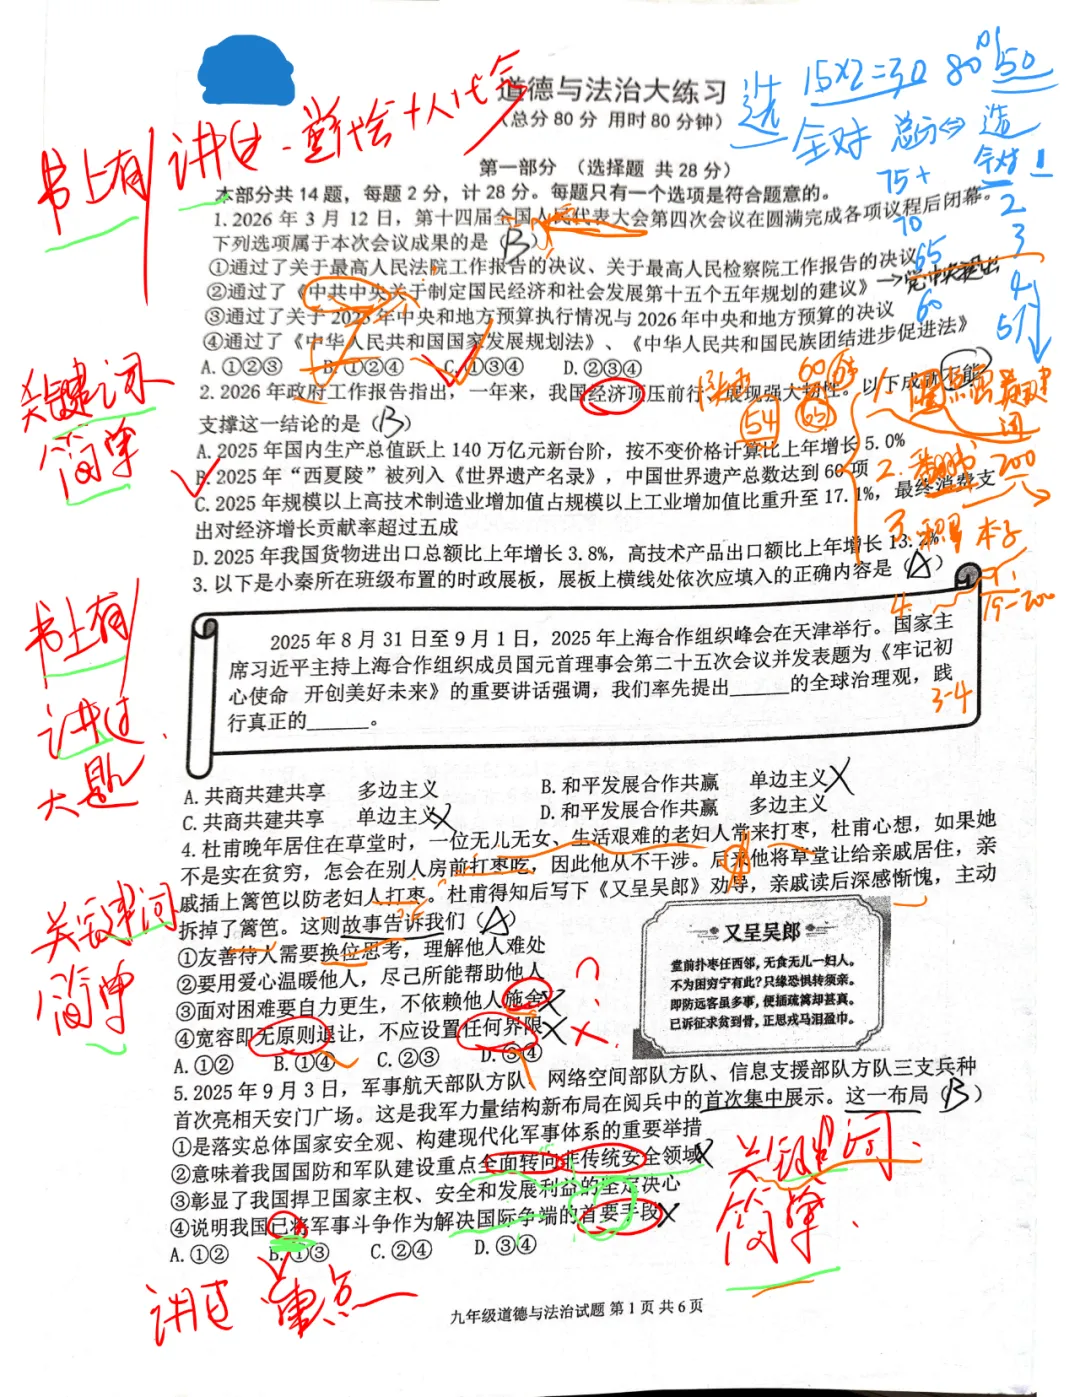 道德与法治大练习
(总分80分 用时80分钟)
第一部分 (选择题 共28分)
本部分共14题，每题2分，计28分。每题只有一个选项是符合题意的。
1. 2026年3月12日，第十四届全国人民代表大会第四次会议在圆满完成各项议程后闭幕。
下列选项属于本次会议成果的是（B）
①通过了关于最高人民法院工作报告的决议、关于最高人民检察院工作报告的决议
②通过了《中共中央关于制定国民经济和社会发展第十五个五年规划的建议》
→党中央提出
③通过了关于2025年中央和地方预算执行情况与2026年中央和地方预算的决议
④通过了《中华人民共和国国家发展规划法》、《中华人民共和国民族团结进步促进法》
A. ①②③ B. ①②④ C. ①③④ D. ②③④
2. 2026年政府工作报告指出，一年来，我国经济顶压前行、展现强大韧性。以下成就不能
支撑这一结论的是（B）
A. 2025年国内生产总值跃上140万亿元新台阶，按不变价格计算比上年增长5.0%
B. 2025年“西夏陵”被列入《世界遗产名录》，中国世界遗产总数达到60项
C. 2025年规模以上高技术制造业增加值占规模以上工业增加值比重升至17.1%，最终消费支
出对经济增长贡献率超过五成
D. 2025年我国货物进出口总额比上年增长3.8%，高技术产品出口额比上年增长13.2%
3. 以下是小秦所在班级布置的时政展板，展板上横线处依次应填入的正确内容是（A）
2025年8月31日至9月1日，2025年上海合作组织峰会在天津举行。国家主
席习近平主持上海合作组织成员国元首理事会第二十五次会议并发表题为《牢记初
心使命 开创美好未来》的重要讲话强调，我们率先提出______的全球治理观，践
行真正的______。
A. 共商共建共享 多边主义 B. 和平发展合作共赢 单边主义
C. 共商共建共享 单边主义 D. 和平发展合作共赢 多边主义
4. 杜甫晚年居住在草堂时，一位无儿无女、生活艰难的老妇人常来打枣，杜甫心想，如果她
不是实在贫穷，怎会在别人房前打枣吃，因此他从不干涉。后来他将草堂让给亲戚居住，亲
戚插上篱笆以防老妇人打枣。杜甫得知后写下《又呈吴郎》劝导，亲戚读后深感惭愧，主动
拆掉了篱笆。这则故事告诉我们（A）
①友善待人需要换位思考，理解他人难处
②要用爱心温暖他人，尽己所能帮助他人
③面对困难要自力更生，不依赖他人施舍
④宽容即无原则退让，不应设置任何界限
A. ①② B. ①④ C. ②③ D. ③④
又呈吴郎
堂前扑枣任西邻，无食无儿一妇人。
不为困穷宁有此？只缘恐惧转须亲。
即防远客虽多事，便插疏篱却甚真。
已诉征求贫到骨，正思戎马泪盈巾。
5. 2025年9月3日，军事航天部队方队、网络空间部队方队、信息支援部队方队三支兵种
首次亮相天安门广场。这是我军力量结构新布局在阅兵中的首次集中展示。这一布局（B）
①是落实总体国家安全观、构建现代化军事体系的重要举措
②意味着我国国防和军队建设重点全面转向非传统安全领域
③彰显了我国捍卫国家主权、安全和发展利益的坚定决心
④说明我国已将军事斗争作为解决国际争端的首要手段
A. ①② B. ①③ C. ②④ D. ③④
九年级道德与法治试题 第1页 共6页
书上有
讲过
关键词
简单
书上有
讲过
大题
关键词
简单
关键词
简单
讲过 重点
选 15×2=30
全对 总分⇔选
75+
70 2
65 3
60 4
54
3-4